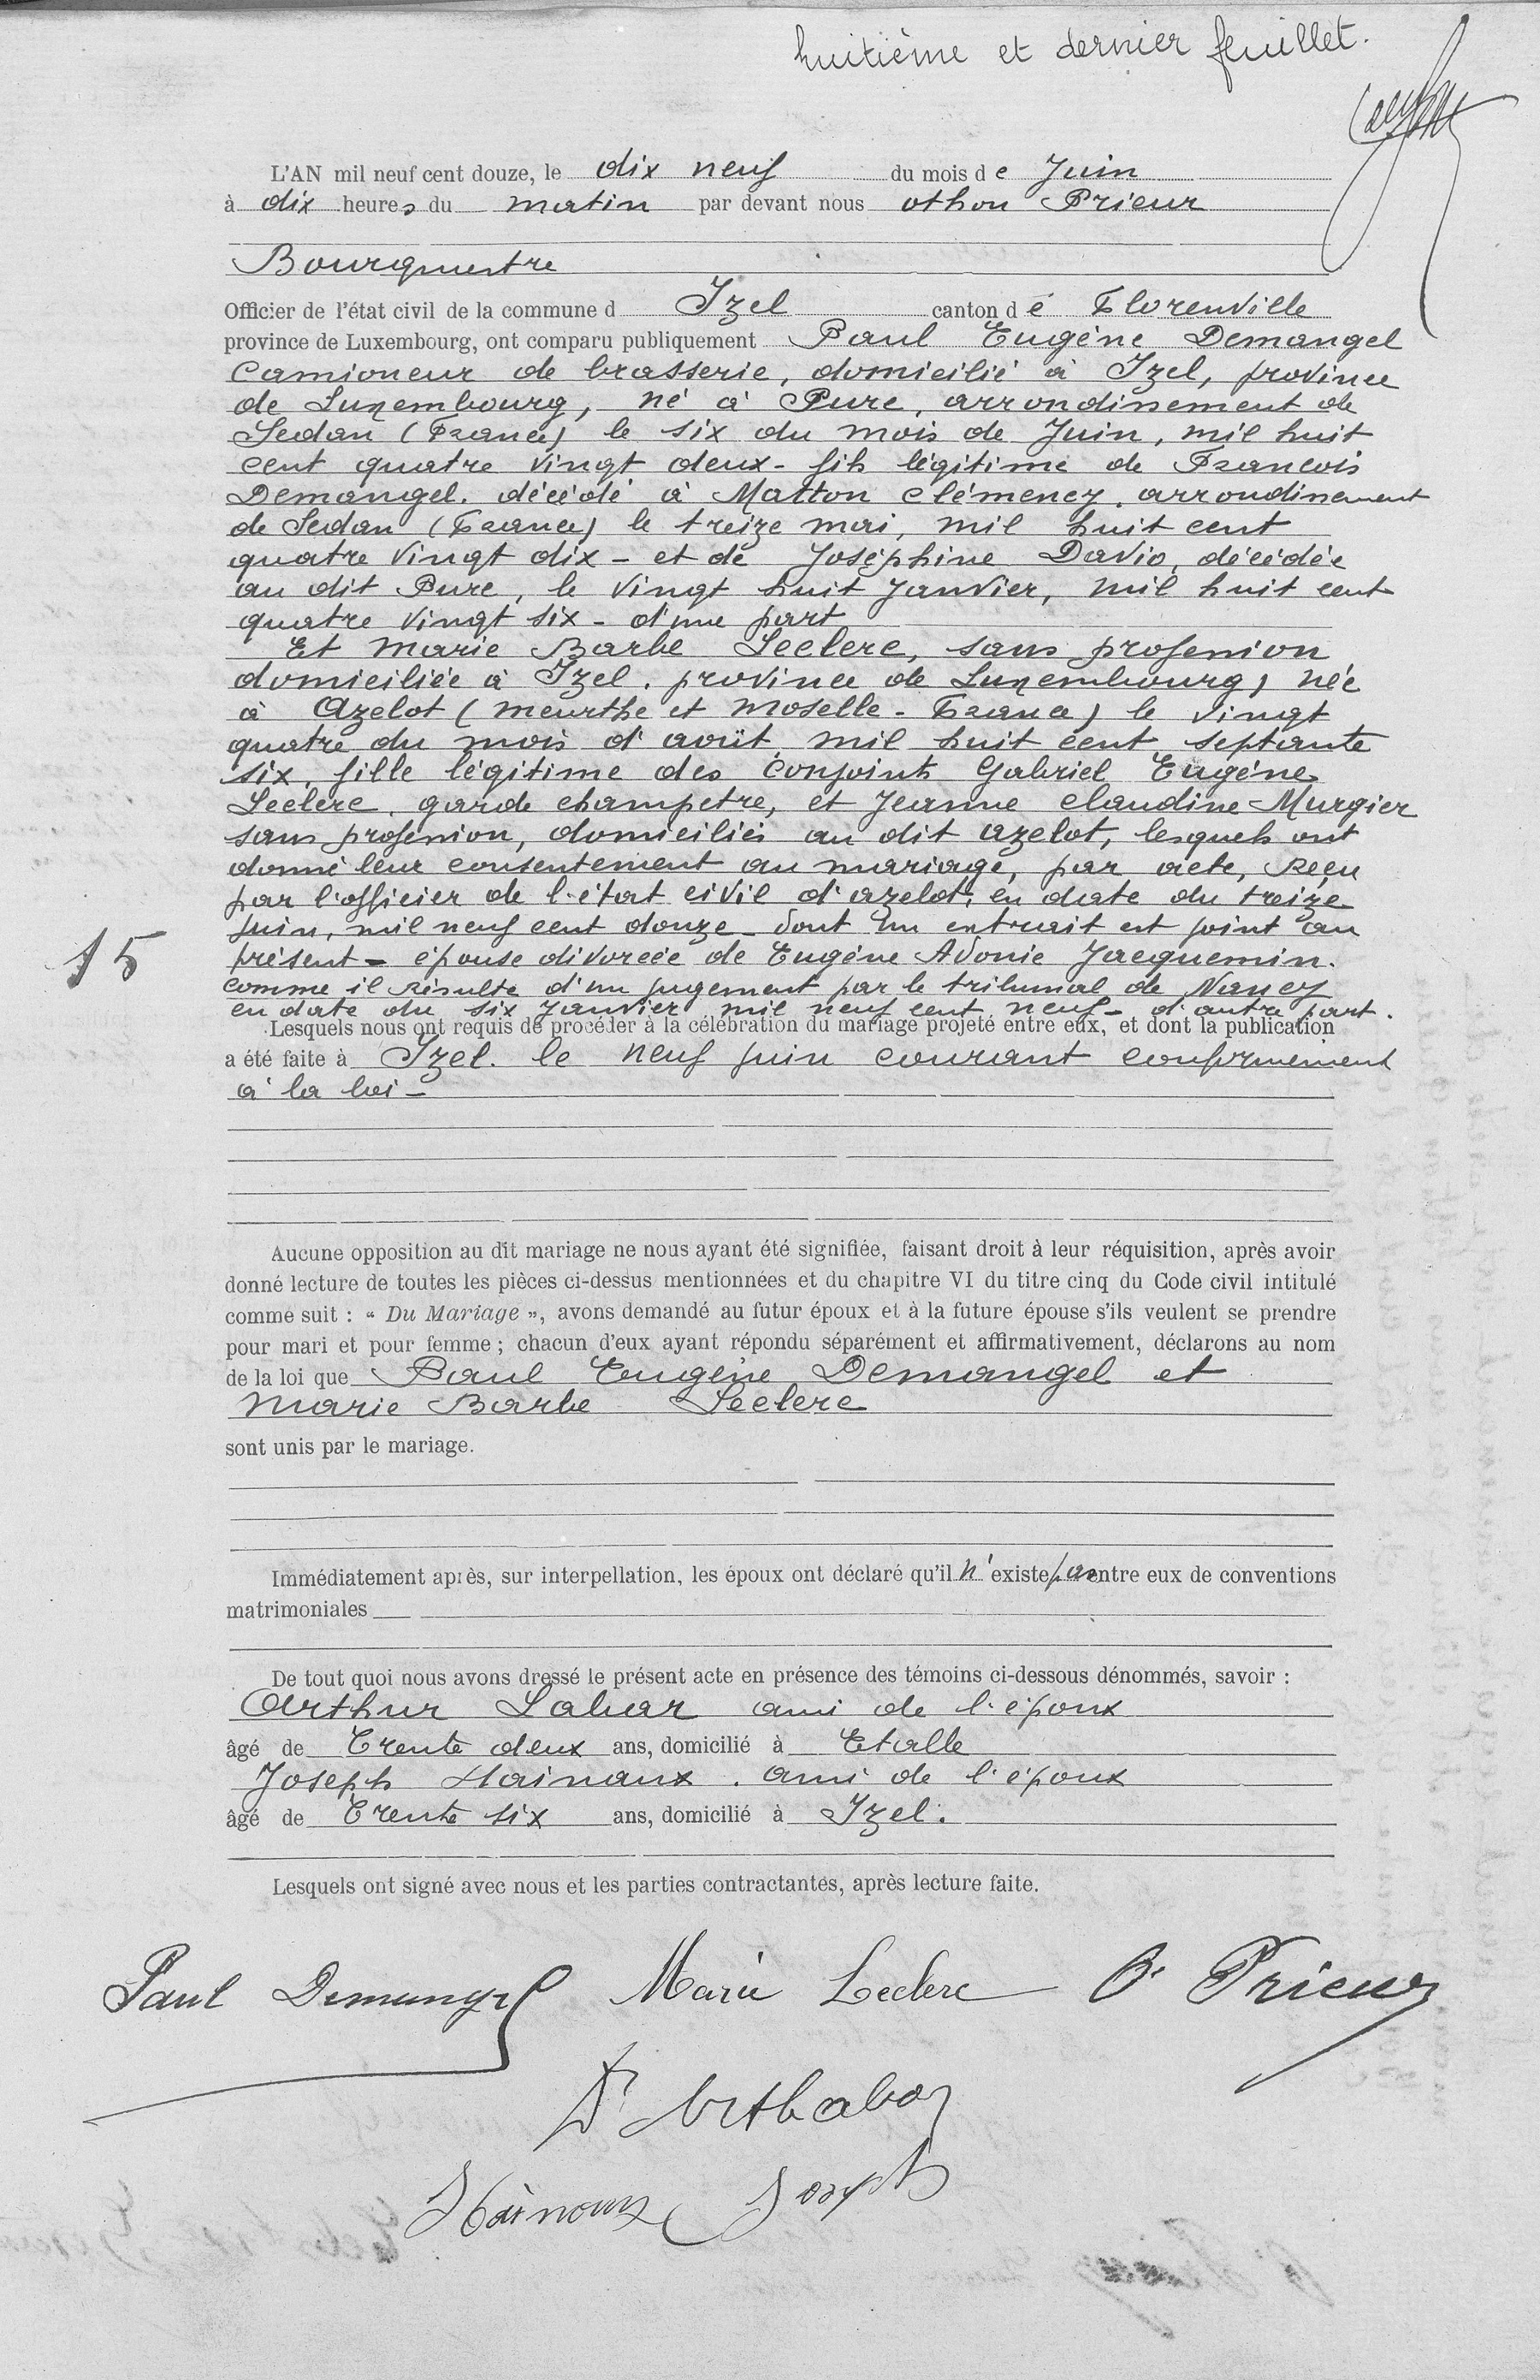 huitième et dernier feuillet.
L'AN mil neuf cent douze, le dix neuf du mois de Juin
à dix heures du matin par devant nous othon Prieur
Bourgmestre
Officier de l'état civil de la commune d Izel canton dé Florenville
province de Luxembourg, ont comparu publiquement Paul Eugène Demangel
Camioneur de brasserie, domicilié à Izel, province
de Luxembourg, né à Pure, arrondissement de
Sedan (France) le six du mois de Juin, mil huit
cent quatre vingt deux - fils légitime de Francois
Demangel, décédé à Matton Clémency, arrondissement
de Sedan (France) le treize mai, mil huit cent
quatre vingt dix - et de Joséphine Davio, décédée
au dit Pure, le vingt huit Janvier, mil huit cent
quatre vingt six - d'une part
Et Marie Barbe Leclerc, sans profession
domiciliée à Izel, province de Luxembourg, née
à Azelot (Meurthe et Moselle - France) le vingt
quatre du mois d'août, mil huit cent septante
six, fille légitime des conjoints Gabriel Eugène
Leclerc, garde champetre, et Jeanne Claudine Murgier
sans profession, domiciliés au dit azelot, lesquels ont
donné leur consentement au mariage, par acte, Reçu
par l'officier de l'état civil d'azelot, en date du treize
juin, mil neuf cent douze - dont un extrait est joint au
15
présent - épouse divorcée de Eugène Adonie Jacquemin.
comme il Résulte d'un jugement par le tribunal de Nancy
en date du six Janvier mil neuf cent neuf - d'autre part.
Lesquels nous ont requis de procéder à la célébration du mariage projeté entre eux, et dont la publication
a été faite à Izel. le neuf juin courant conformement
à la loi -
Aucune opposition au dit mariage ne nous ayant été signifiée, faisant droit à leur réquisition, après avoir
donné lecture de toutes les pièces ci-dessus mentionnées et du chapitre VI du titre cinq du Code civil intitulé
comme suit : « Du Mariage », avons demandé au futur époux et à la future épouse s'ils veulent se prendre
pour mari et pour femme ; chacun d'eux ayant répondu séparément et affirmativement, déclarons au nom
de la loi que Paul Eugène Demangel et
Marie Barbe Leclerc
sont unis par le mariage.
Immédiatement après, sur interpellation, les époux ont déclaré qu'il n'existe pas entre eux de conventions
matrimoniales
De tout quoi nous avons dressé le présent acte en présence des témoins ci-dessous dénommés, savoir :
Arthur Labar ami de l'époux
âgé de Trente deux ans, domicilié à Etalle
Joseph Hainaux. ami de l'époux
âgé de Trente six ans, domicilié à Izel.
Lesquels ont signé avec nous et les parties contractantes, après lecture faite.
Paul Demangel Marie Leclerc O. Prieur
Hainaux Joseph